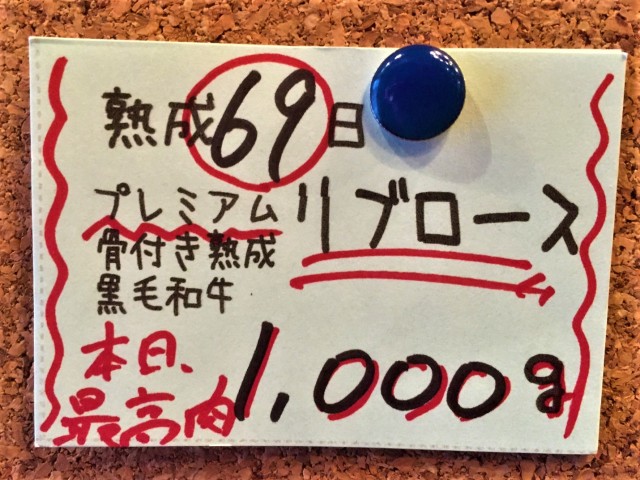 熟成69日
プレミアム
骨付き熟成
黒毛和牛
リブロース
本日、
最高肉
1,000g